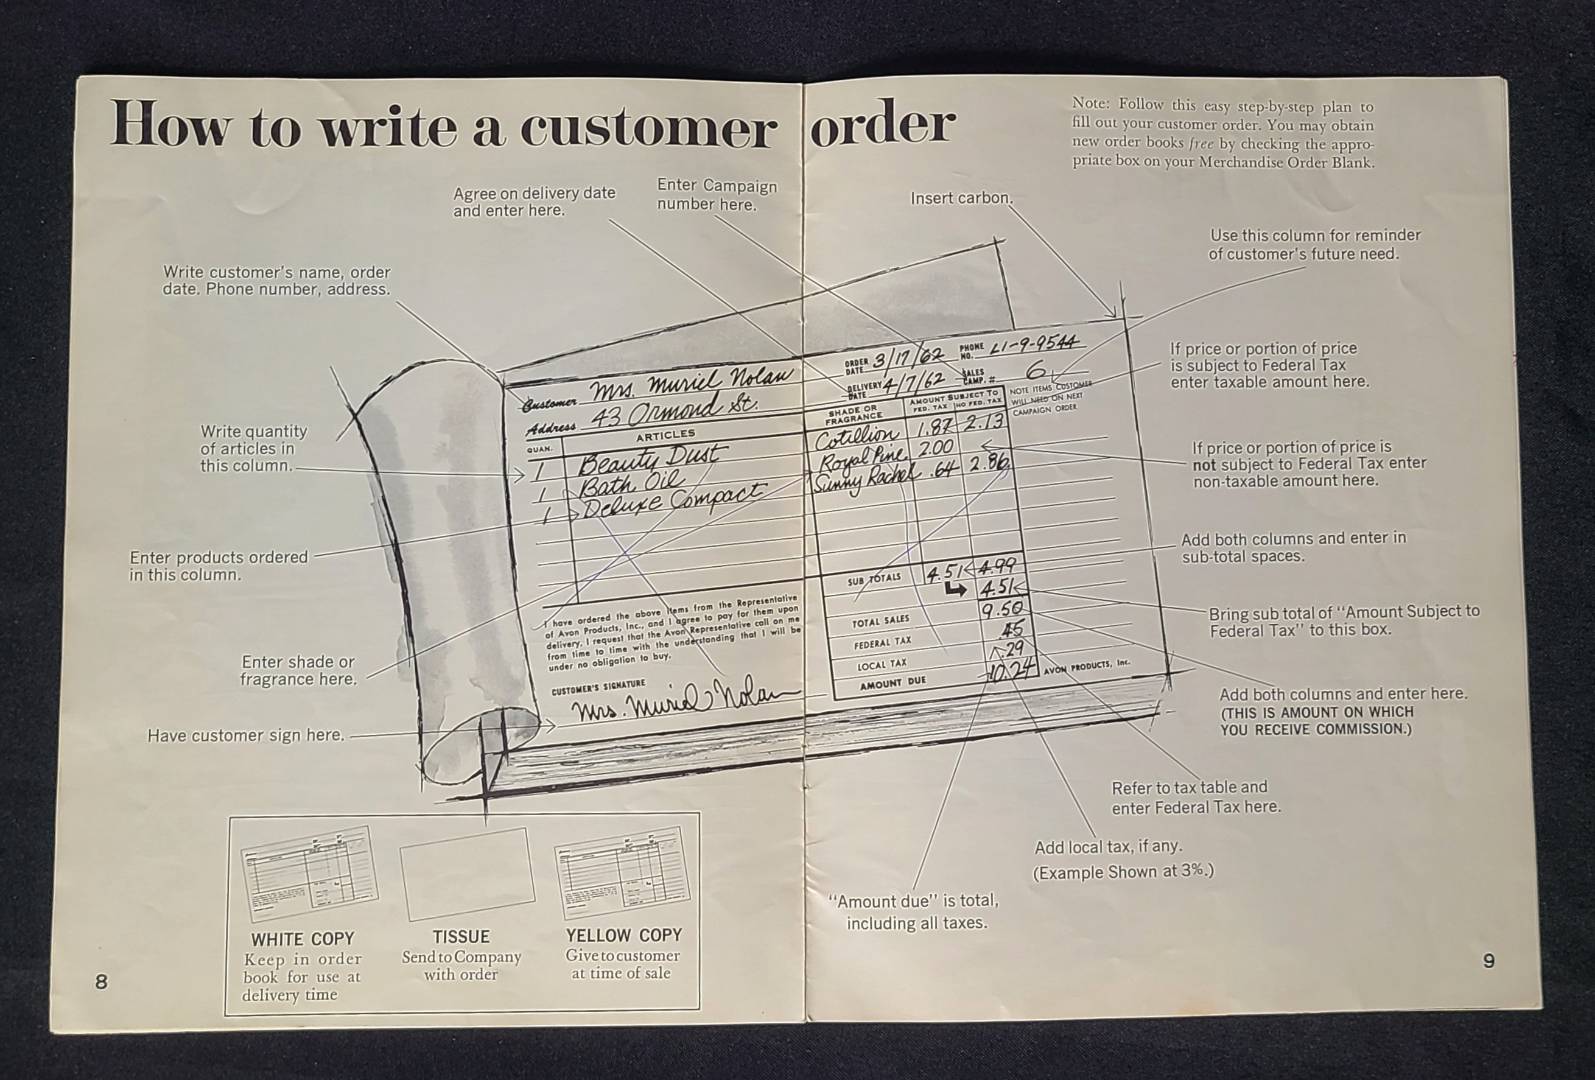 How to write a customer order
Note: Follow this easy step-by-step plan to
fill out your customer order. You may obtain
new order books free by checking the appro-
priate box on your Merchandise Order Blank.
Agree on delivery date
and enter here.
Enter Campaign
number here.
Insert carbon.
Use this column for reminder
of customer's future need.
Write customer's name, order
date. Phone number, address.
If price or portion of price
is subject to Federal Tax
enter taxable amount here.
Write quantity
of articles in
this column.
If price or portion of price is
not subject to Federal Tax enter
non-taxable amount here.
Enter products ordered
in this column.
Add both columns and enter in
sub-total spaces.
Bring sub total of "Amount Subject to
Federal Tax" to this box.
Enter shade or
fragrance here.
Add both columns and enter here.
(THIS IS AMOUNT ON WHICH
YOU RECEIVE COMMISSION.)
Have customer sign here.
Refer to tax table and
enter Federal Tax here.
Add local tax, if any.
(Example Shown at 3%.)
"Amount due" is total,
including all taxes.
Customer Mrs. Muriel Nolan
ORDER DATE 3/17/62 PHONE NO. LI-9-9544
Address 43 Ormond St.
DELIVERY DATE 4/7/62 SALES CAMP. # 6
QUAN. ARTICLES SHADE OR FRAGRANCE AMOUNT SUBJECT TO FED. TAX NO FED. TAX
NOTE ITEMS CUSTOMER
WILL NEED ON NEXT
CAMPAIGN ORDER
1 Beauty Dust Cotillion 1.87 2.13
1 Bath Oil Royal Pine 2.00
1 Deluxe Compact Sunny Rachel .64 2.86
SUB TOTALS 4.51 4.99
4.51
TOTAL SALES 9.50
FEDERAL TAX .45
LOCAL TAX .29
AMOUNT DUE 10.24 AVON PRODUCTS, Inc.
I have ordered the above items from the Representative
of Avon Products, Inc., and I agree to pay for them upon
delivery. I request that the Avon Representative call on me
from time to time with the understanding that I will be
under no obligation to buy.
CUSTOMER'S SIGNATURE
Mrs. Muriel Nolan
WHITE COPY
Keep in order
book for use at
delivery time
TISSUE
Send to Company
with order
YELLOW COPY
Give to customer
at time of sale
8
9